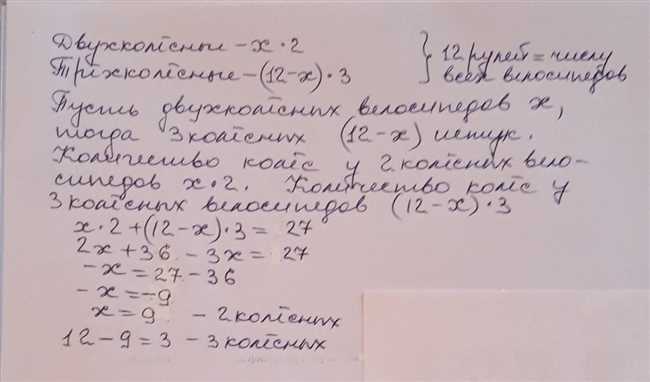 Двухколёсные – x · 2
Трёхколёсные – (12–x) · 3
} 12 рулей = числу
всех велосипедов
Пусть двухколёсных велосипедов x,
тогда 3 колёсных (12–x) штук.
Количество колёс у 2 колёсных вело-
сипедов x · 2. Количество колёс у
3 колёсных велосипедов (12–x) · 3
x · 2 + (12 – x) · 3 = 27
2x + 36 – 3x = 27
–x = 27 – 36
–x = –9
x = 9 – 2 колёсных
12 – 9 = 3 – 3 колёсных